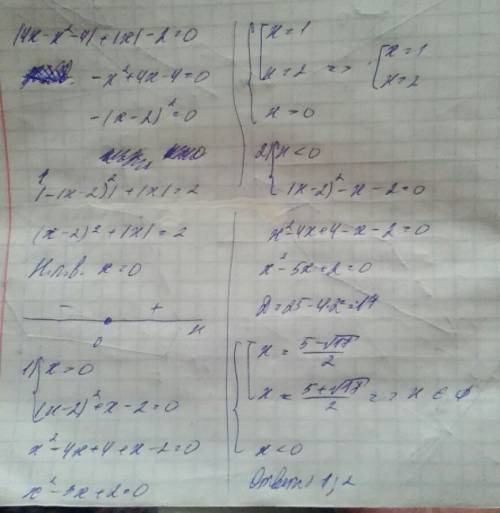 |4x-x²-4|+|x|-2=0
-x²+4x-4=0
-(x-2)²=0
|-(x-2)²|+|x|=2
(x-2)²+|x|=2
Н.м.в. x=0
- +
0 x
1) { x=0
(x-2)²+x-2=0
x²-4x+4+x-2=0
x²-3x+2=0
{ [ x=1
x=2 => { x=1
x=2
x=0
2) { x<0
(x-2)²-x-2=0
x²-4x+4-x-2=0
x²-5x+2=0
D=25-4·2=17
{ [ x = (5-√17)/2
x = (5+√17)/2 => x ∈ ∅
x<0
Ответ: 1; 2